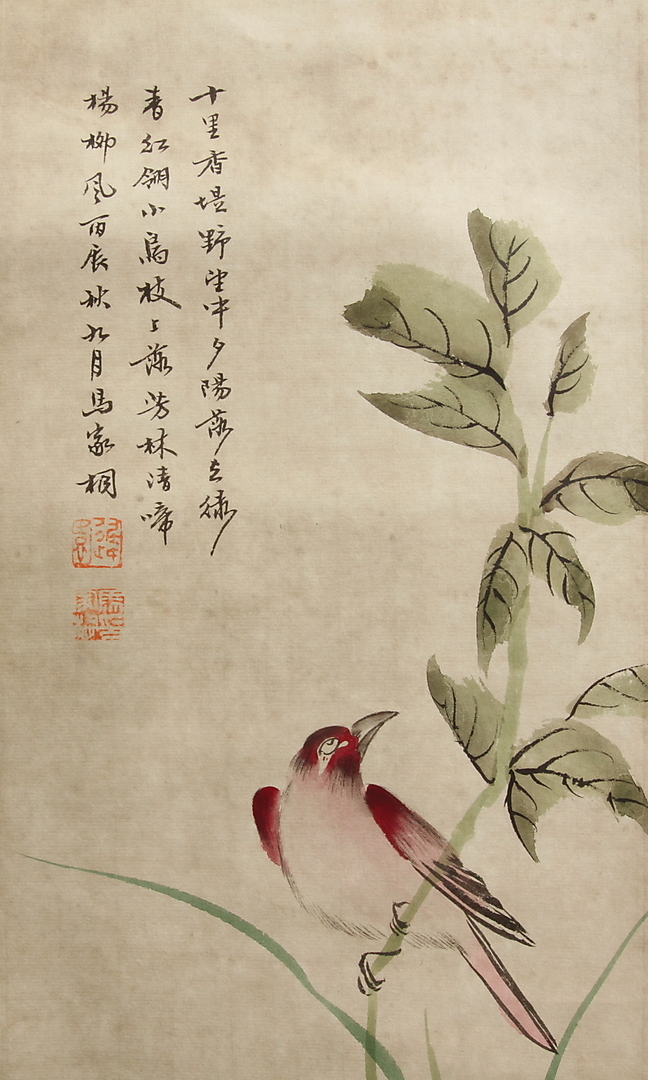 十里香堤野望中夕陽落去綠
青紅翎小鳥枝上落芳林清啼
楊柳風丙辰秋九月馬家桐